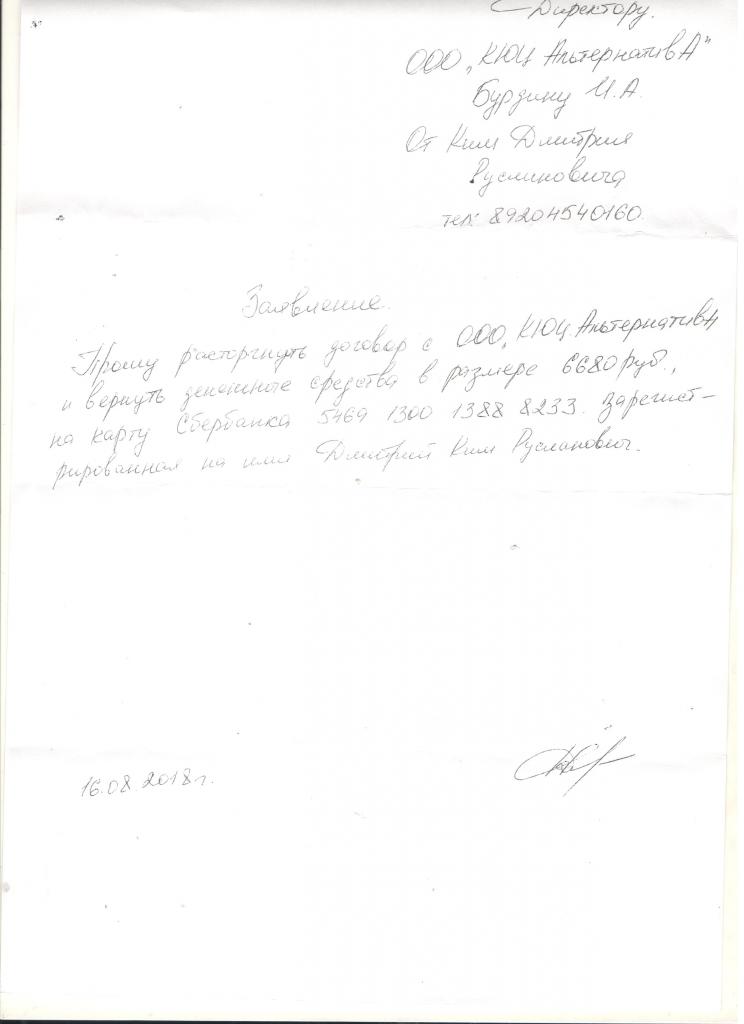 Директору.
ООО „КЮЦ АльтернативА"
Бурдину И.А.
От Ким Дмитрия
Руслановича
тел: 89204540160.
Заявление.
Прошу расторгнуть договор с ООО „КЮЦ АльтернативА
и вернуть денежные средства в размере 6680 руб.,
на карту Сбербанка 5469 1300 1388 8233. Зарегист-
рированная на имя Дмитрий Ким Русланович.
16.08.2018г.